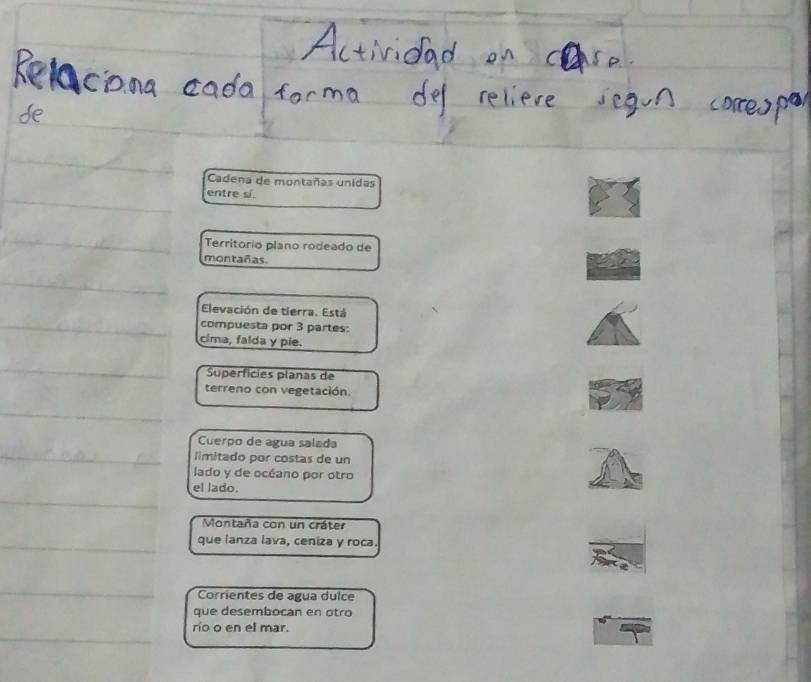 Actividad en clase.
Relaciona cada forma del relieve segun correspon
de
Cadena de montañas unidas
entre sí.
Territorio plano rodeado de
montañas.
Elevación de tierra. Está
compuesta por 3 partes:
cima, falda y pie.
Superficies planas de
terreno con vegetación.
Cuerpo de agua salada
limitado por costas de un
lado y de océano por otro
el lado.
Montaña con un cráter
que lanza lava, ceniza y roca.
Corrientes de agua dulce
que desembocan en otro
río o en el mar.